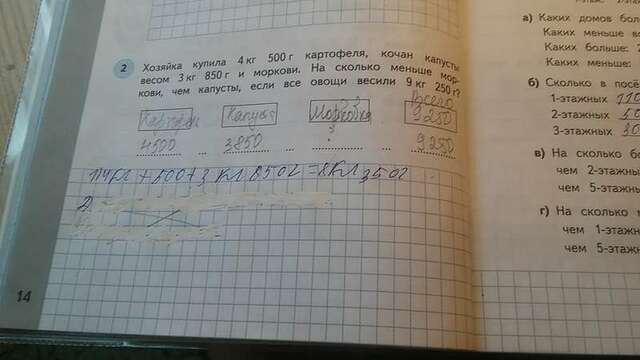 2 Хозяйка купила 4 кг 500 г картофеля, кочан капусты
весом 3 кг 850 г и моркови. На сколько меньше мор-
кови, чем капусты, если все овощи весили 9 кг 250 г?
Всего
Капуста Морковка 9250
4500 3850 9250
=8кг 350г
2)
14
1-этаж
а) Каких домов бол
Каких меньше вс
Каких больше:
Каких меньше:
б) Сколько в посё
1-этажных
2-этажных
3-этажных
в) На сколько бо
чем 2-этажн
чем 5-этажн
г) На сколько
чем 1-этажн
чем 5-этаж